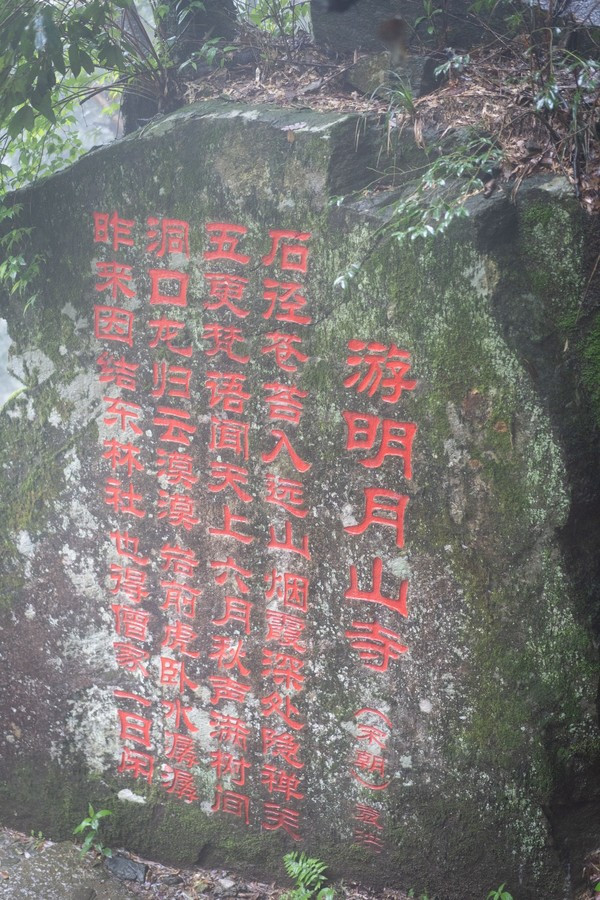 游明月山寺（宋朝）
石径苍苔入远山烟霞深处隐禅关
五更梵语闻天上六月秋声满树间
洞口龙归云漠漠岩前虎卧水潺潺
昨来因结东林社也得僧家一日闲